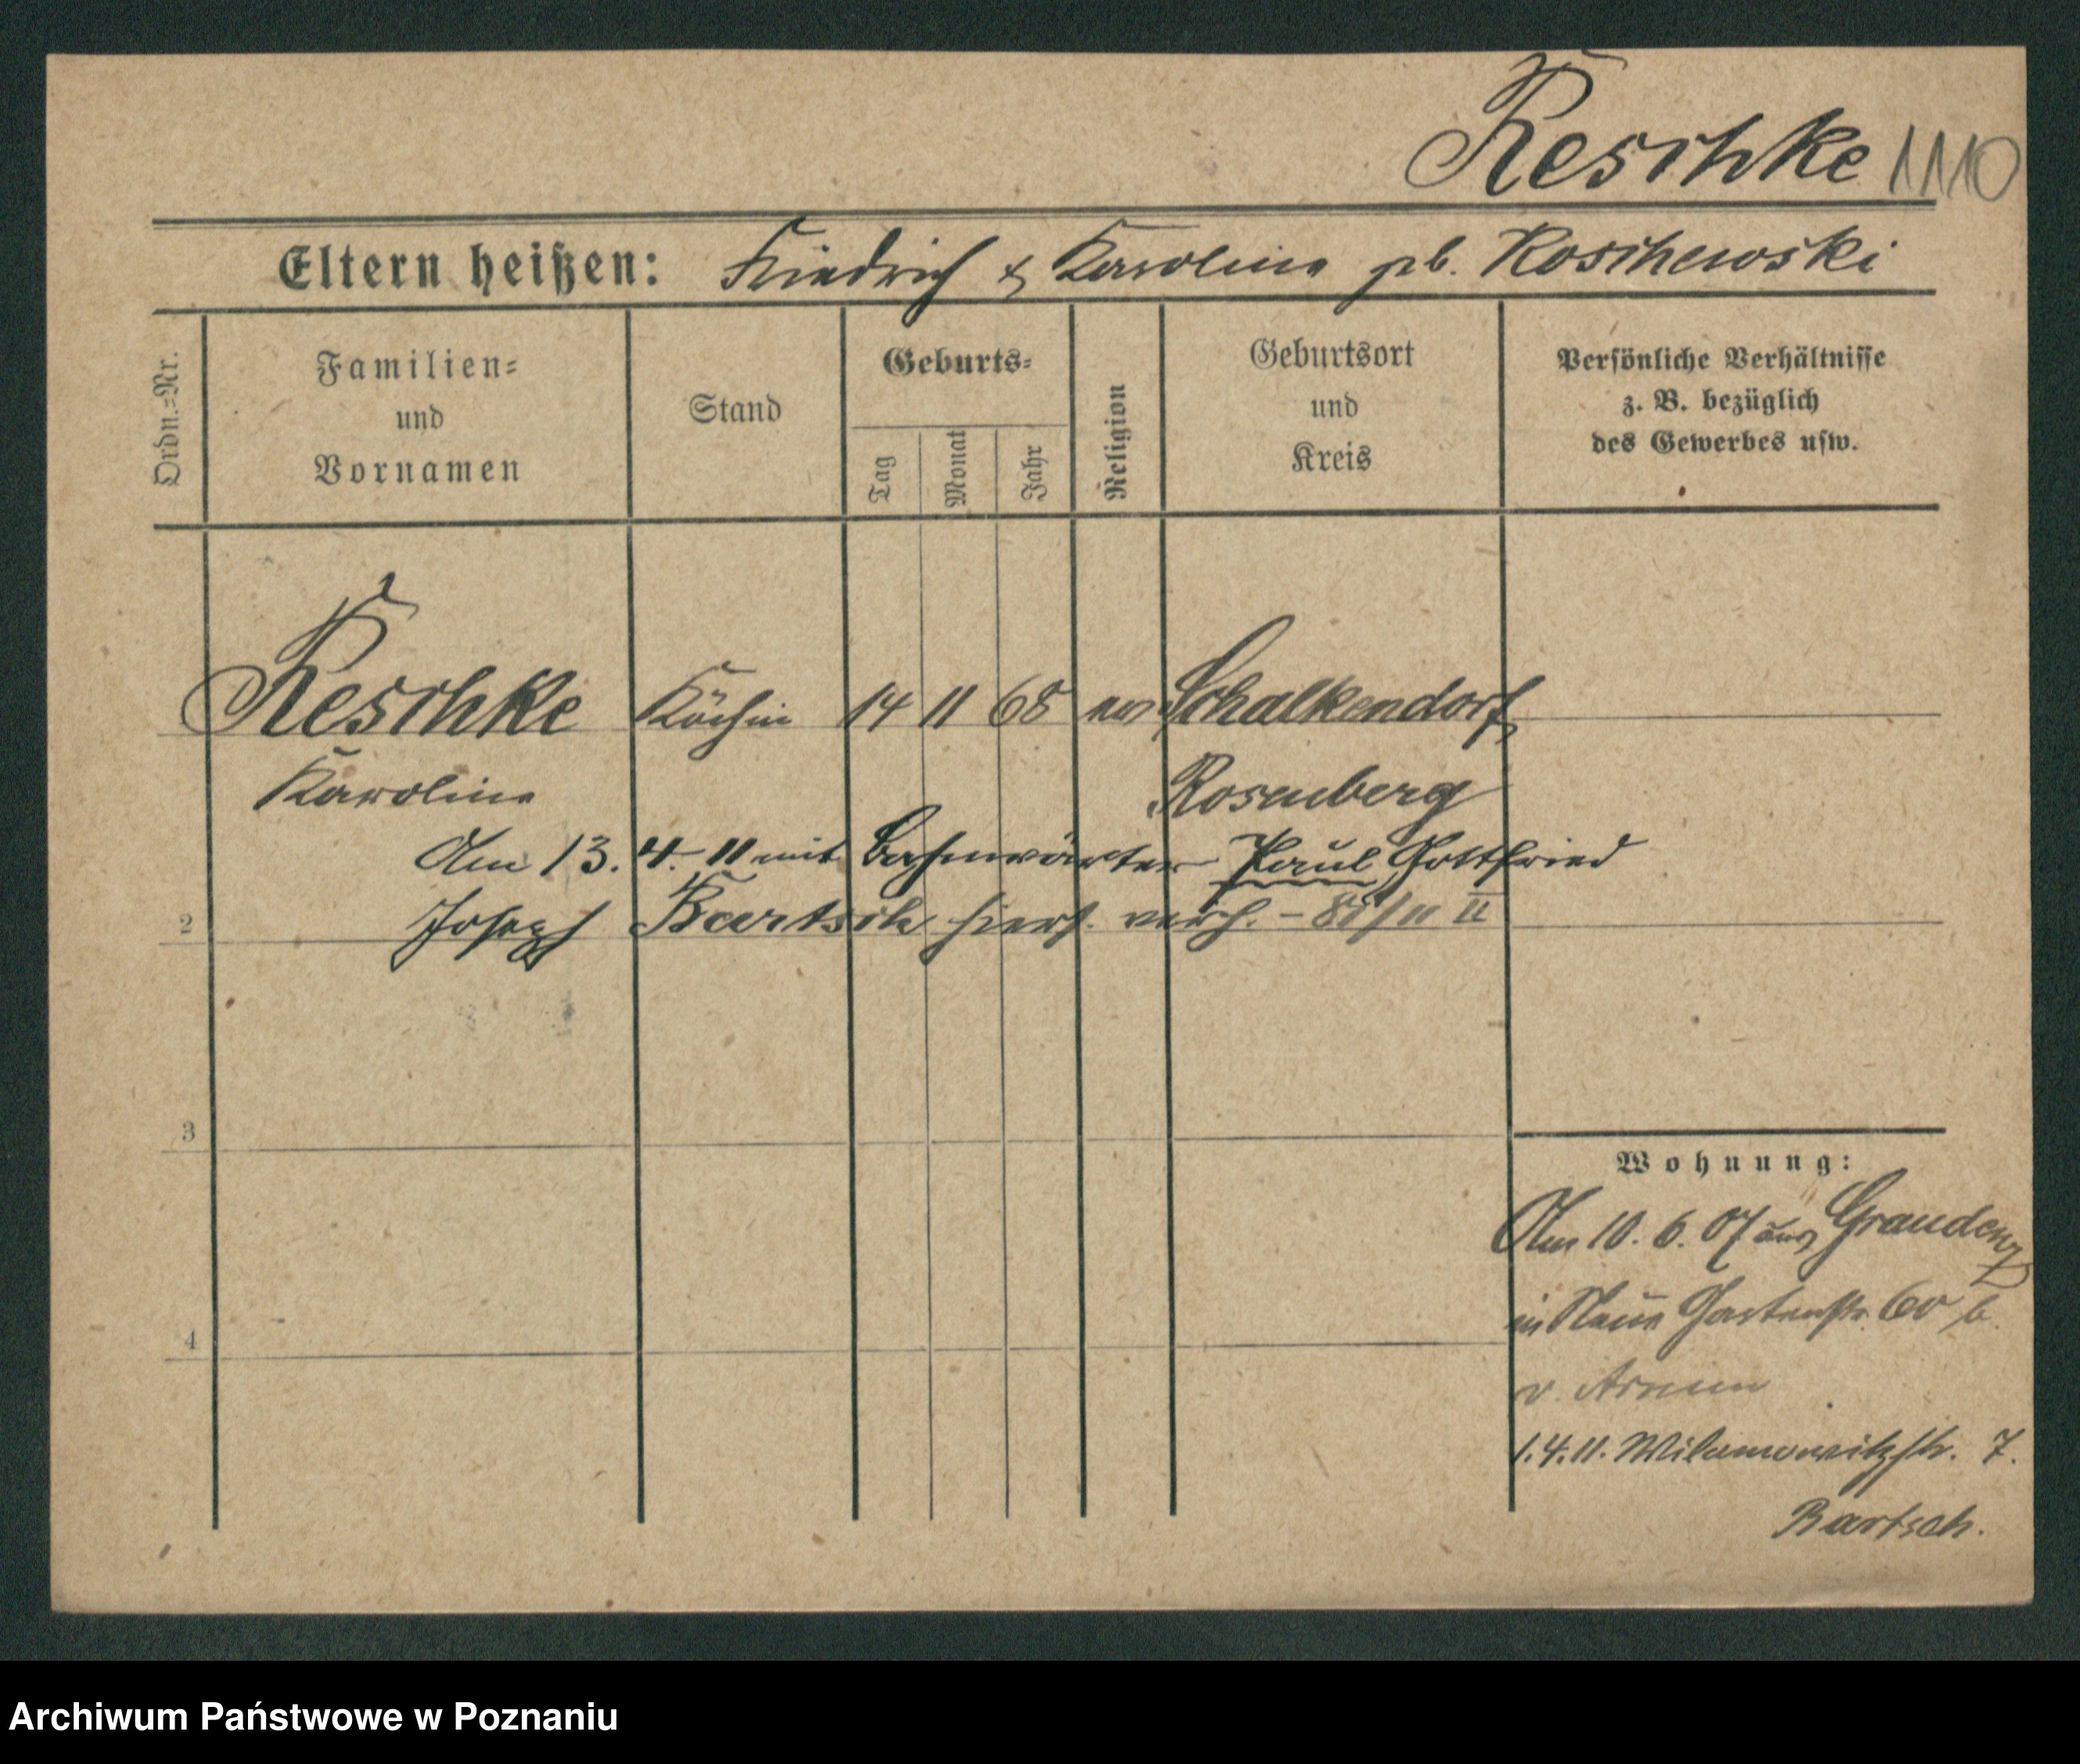 Reschke 1110
Eltern heißen: Friedrich & Karoline geb. Koschewski
Ordn.=Nr.
Familien=
und
Vornamen
Stand
Geburts=
Tag
Monat
Jahr
Religion
Geburtsort
und
Kreis
Persönliche Verhältnisse
z. B. bezüglich
des Gewerbes usw.
Reschke Köchin 14 11 68 ev Schalkendorf,
Karoline Rosenberg
Am 13. 4. 11 mit Bahnwärter Paul Gottfried
2 Joseph Bartsch hiers. verh. – 11 II
3
4
Wohnung:
Am 10. 6. 07 aus Graudenz
in Neue Gartenstr. 60 b.
v. Arnim
1.4.11. Wilamowitzstr. 7.
Bartsch.
Archiwum Państwowe w Poznaniu